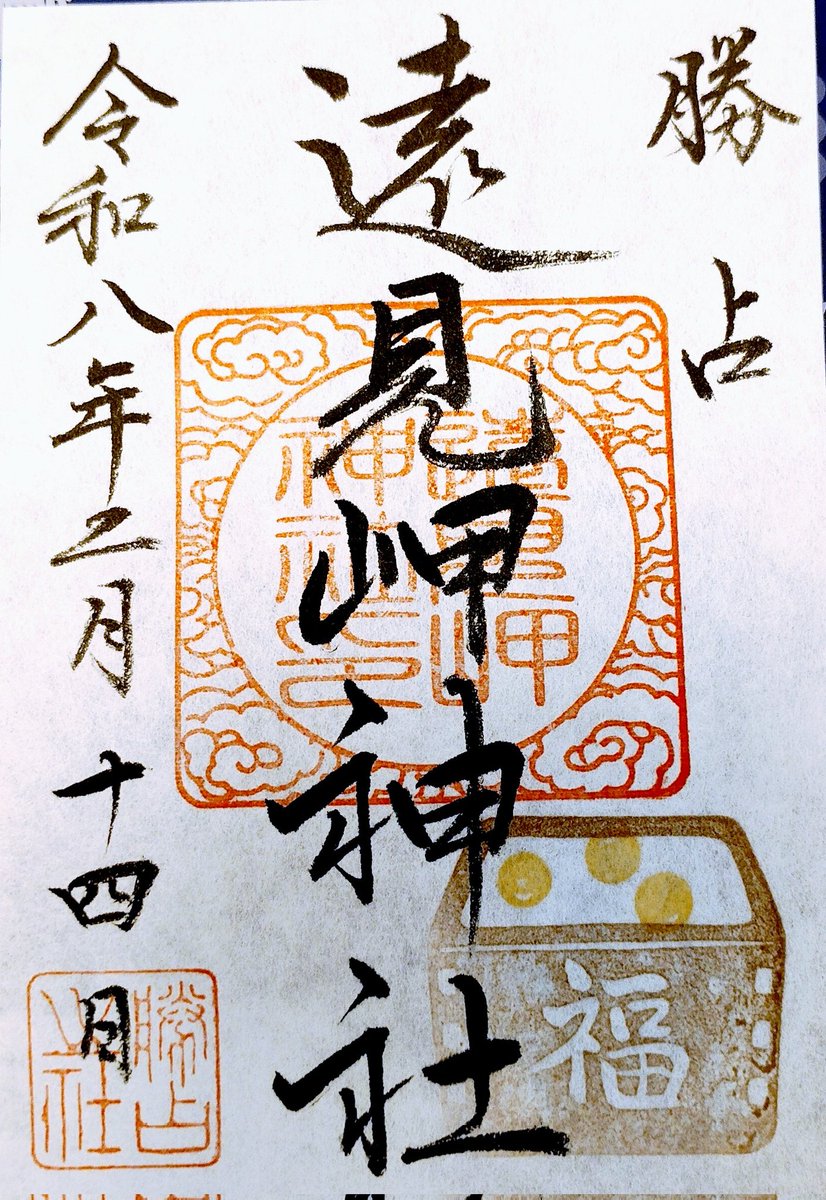 勝占
遠見岬神社
令和八年二月十四日
遠見岬
神社之印
福
勝占
之社